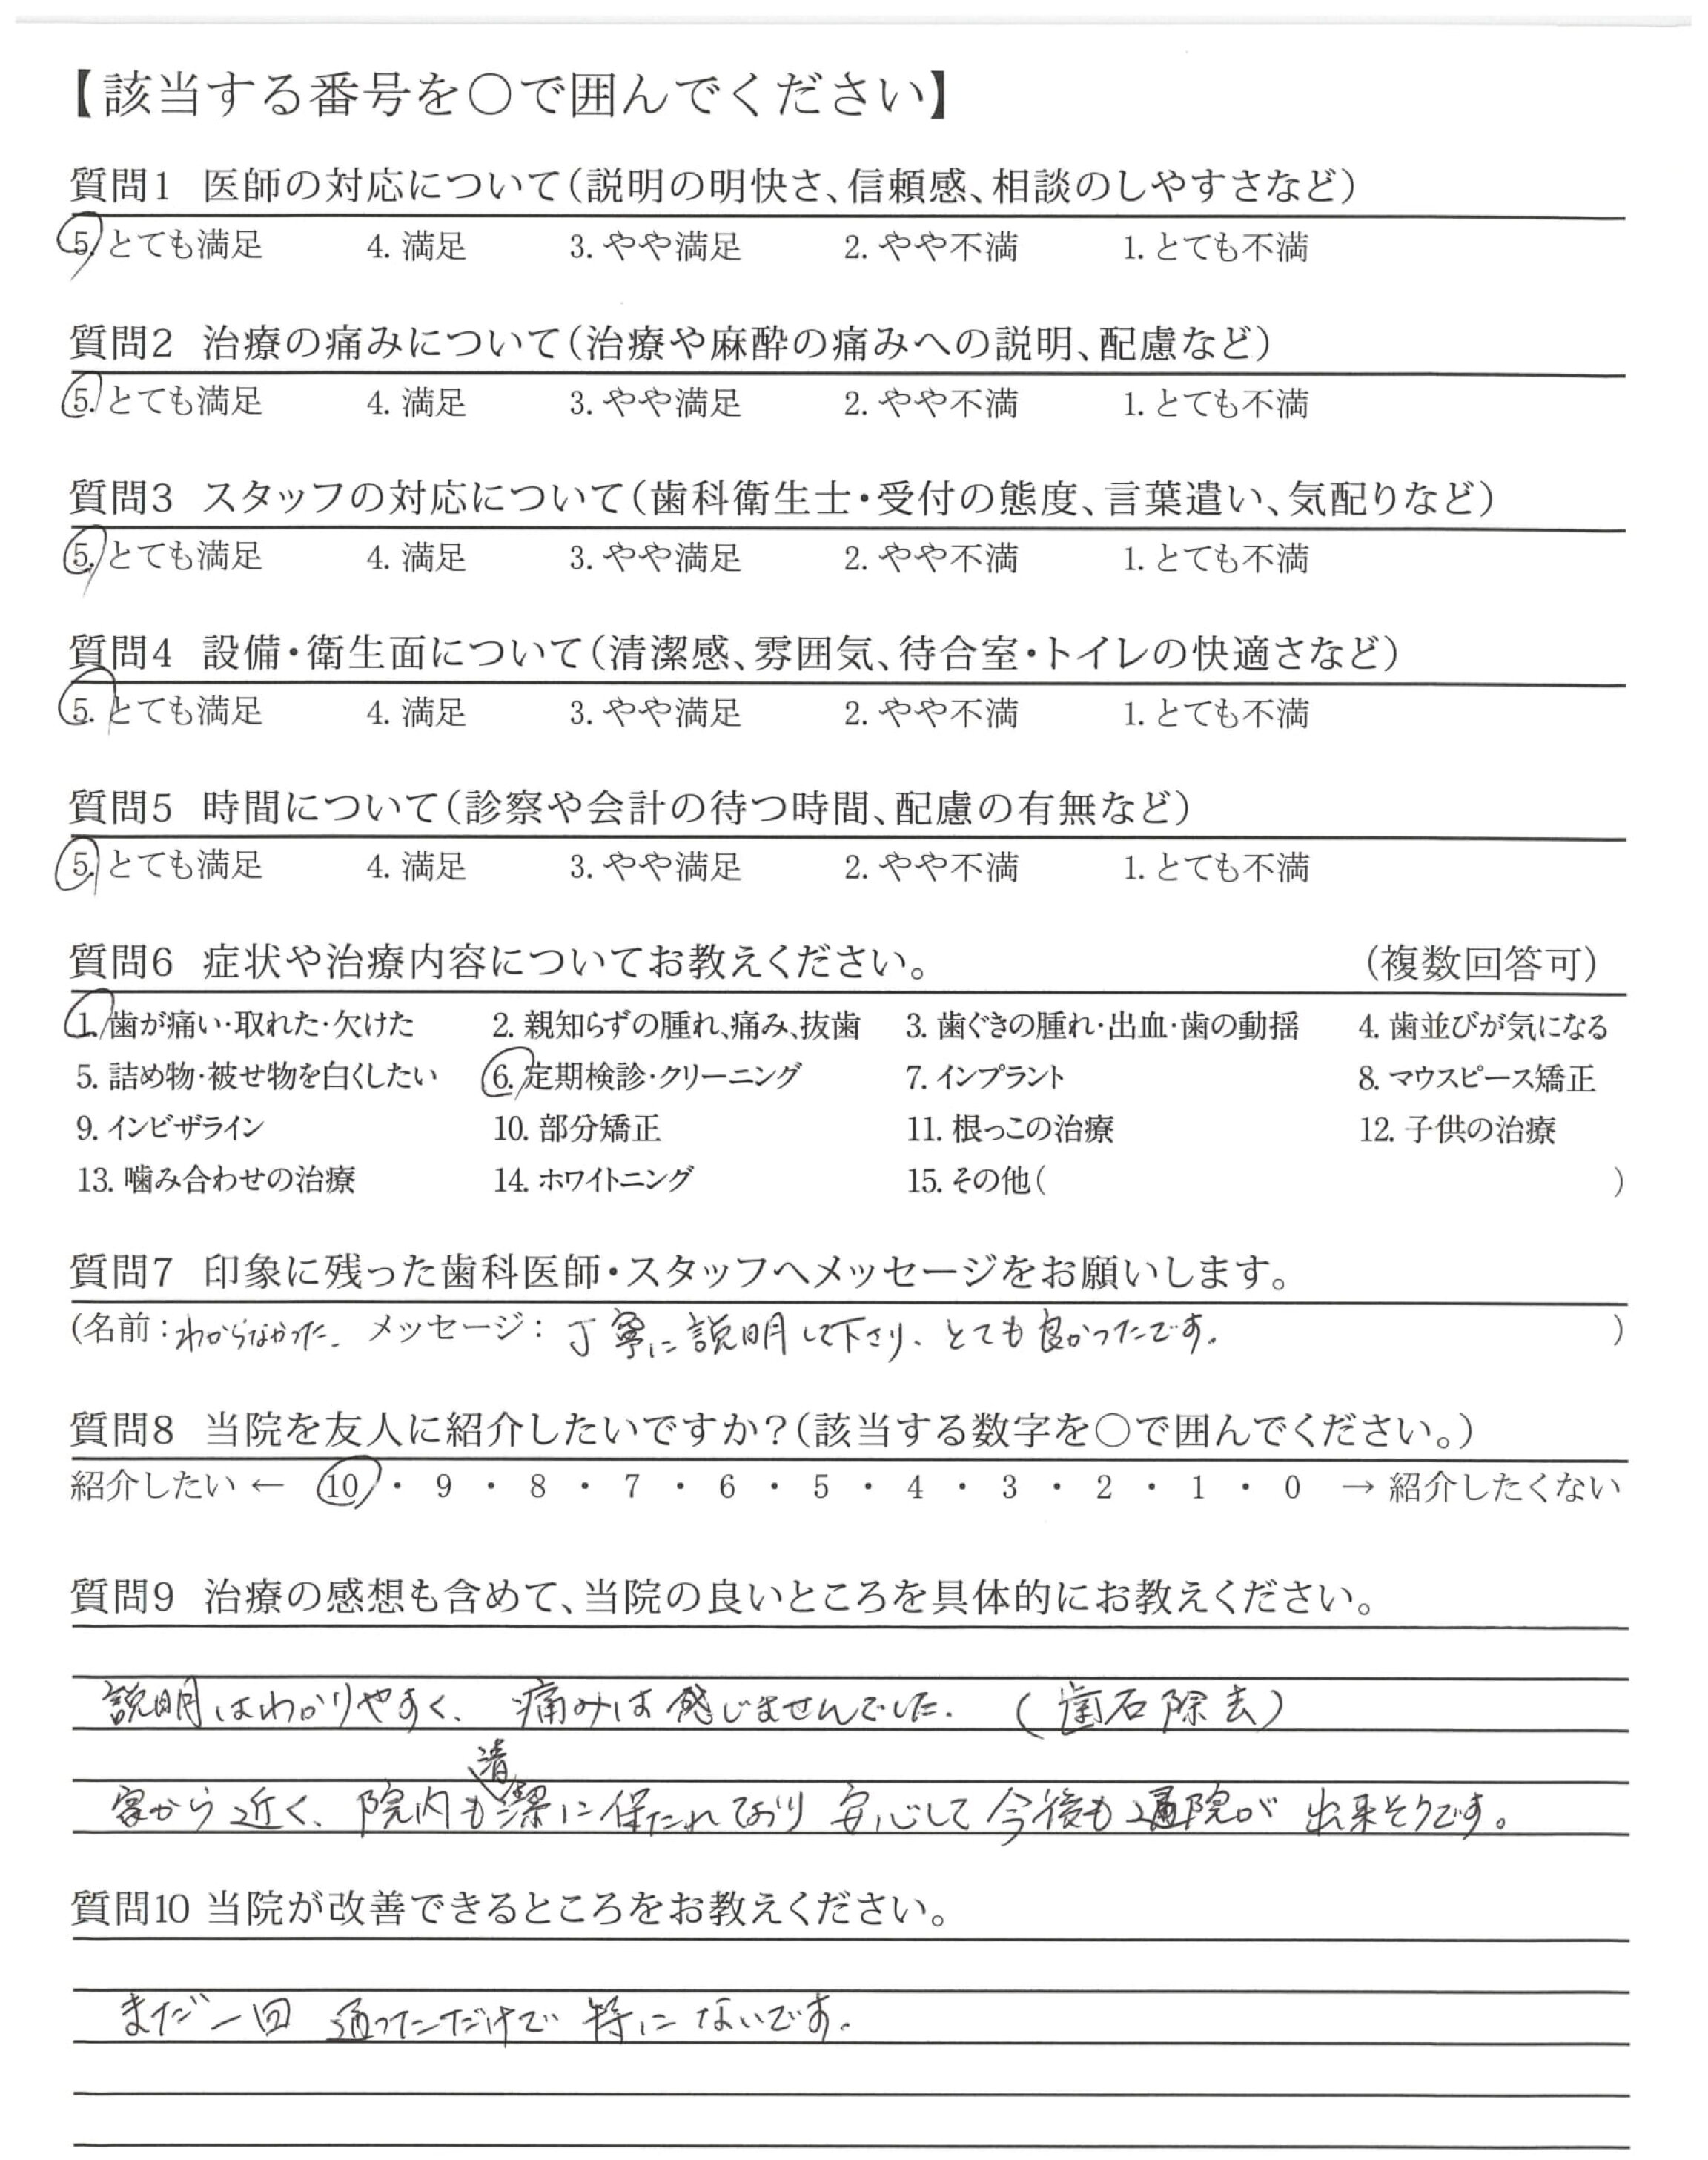 【該当する番号を○で囲んでください】
質問1 医師の対応について(説明の明快さ、信頼感、相談のしやすさなど)
5. とても満足 4. 満足 3. やや満足 2. やや不満 1. とても不満
質問2 治療の痛みについて(治療や麻酔の痛みへの説明、配慮など)
5. とても満足 4. 満足 3. やや満足 2. やや不満 1. とても不満
質問3 スタッフの対応について(歯科衛生士・受付の態度、言葉遣い、気配りなど)
5. とても満足 4. 満足 3. やや満足 2. やや不満 1. とても不満
質問4 設備・衛生面について(清潔感、雰囲気、待合室・トイレの快適さなど)
5. とても満足 4. 満足 3. やや満足 2. やや不満 1. とても不満
質問5 時間について(診察や会計の待つ時間、配慮の有無など)
5. とても満足 4. 満足 3. やや満足 2. やや不満 1. とても不満
質問6 症状や治療内容についてお教えください。 (複数回答可)
1. 歯が痛い・取れた・欠けた 2. 親知らずの腫れ、痛み、抜歯 3. 歯ぐきの腫れ・出血・歯の動揺 4. 歯並びが気になる
5. 詰め物・被せ物を白くしたい 6. 定期検診・クリーニング 7. インプラント 8. マウスピース矯正
9. インビザライン 10. 部分矯正 11. 根っこの治療 12. 子供の治療
13. 噛み合わせの治療 14. ホワイトニング 15. その他( )
質問7 印象に残った歯科医師・スタッフへメッセージをお願いします。
(名前：わからなかった、 メッセージ： 丁寧に説明して下さり、とても良かったです。 )
質問8 当院を友人に紹介したいですか？(該当する数字を○で囲んでください。)
紹介したい ← 10 ・ 9 ・ 8 ・ 7 ・ 6 ・ 5 ・ 4 ・ 3 ・ 2 ・ 1 ・ 0 → 紹介したくない
質問9 治療の感想も含めて、当院の良いところを具体的にお教えください。
説明はわかりやすく、痛みは感じませんでした。(歯石除去)
家から近く、院内も清潔に保たれており安心して今後も通院が出来そうです。
質問10 当院が改善できるところをお教えください。
まだ一回通っただけで特にないです。